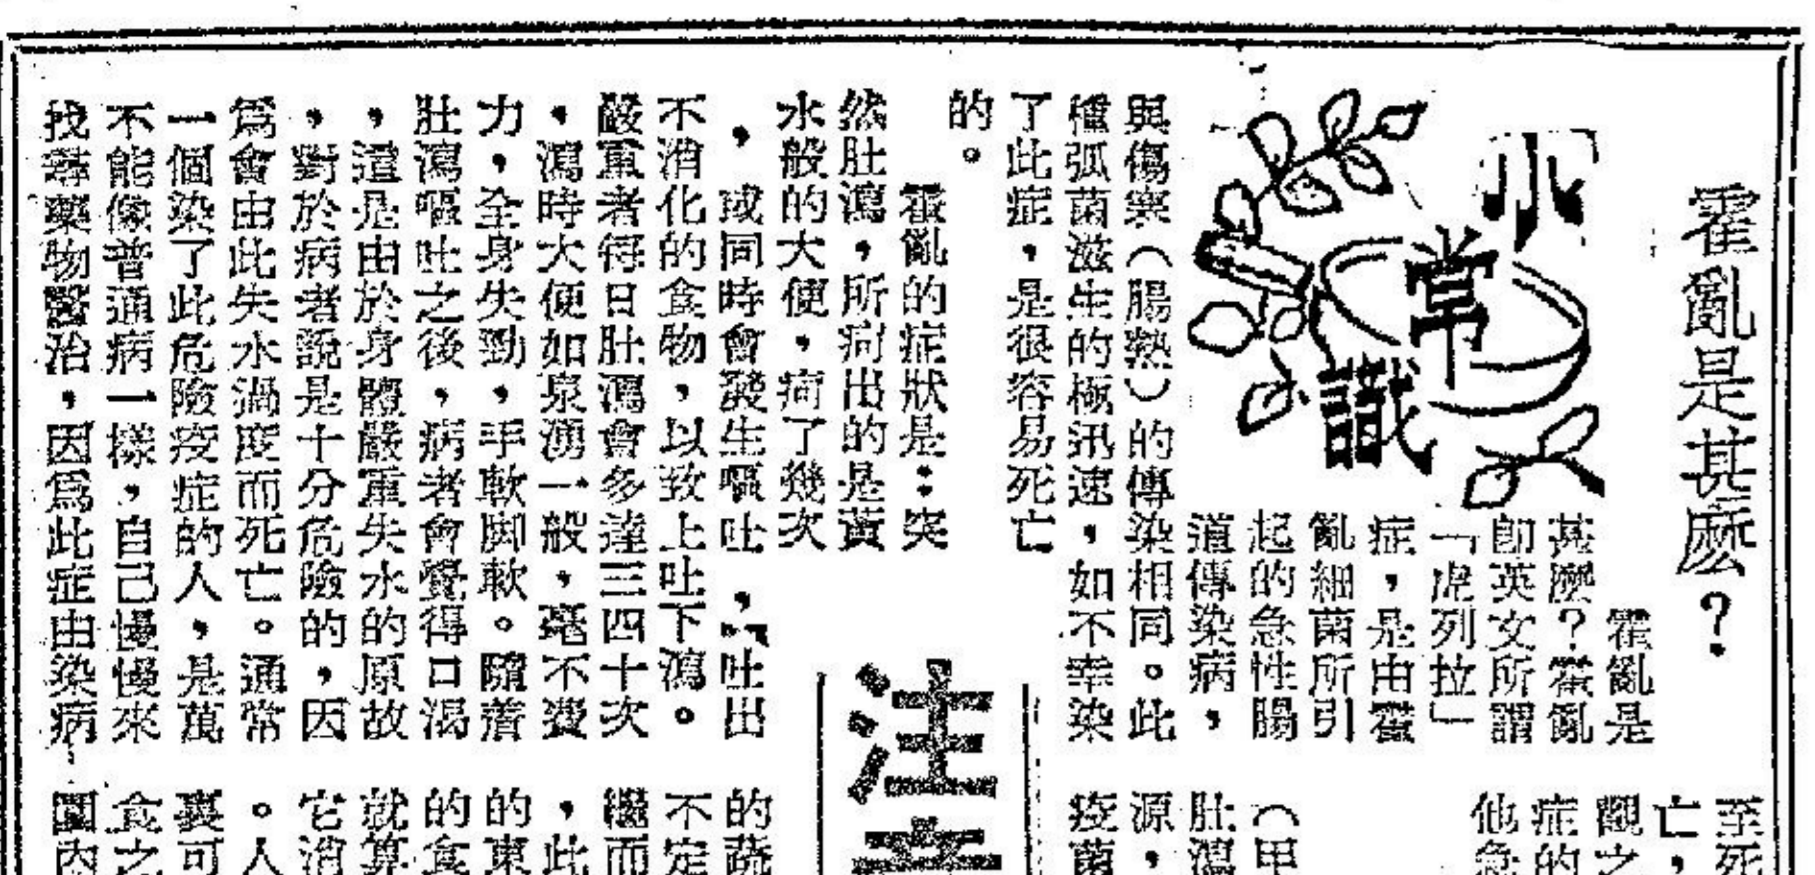 霍亂是甚麼？
小常識
霍亂是
甚麼？霍亂
卽英文所謂
「虎列拉」
症，是由霍
亂細菌所引
起的急性腸
道傳染病，
與傷寒（腸熱）的傳染相同。此
種弧菌滋生的極汛速，如不幸染
了此症，是很容易死亡
的。
霍亂的症狀是：突
然肚瀉，所疴出的是黃
水般的大便，疴了幾次
，或同時會發生嘔吐，吐出
不消化的食物，以致上吐下瀉。
嚴重者每日肚瀉會多達三四十次
，瀉時大便如泉湧一般，毫不費
力，全身失勁，手軟脚軟。隨着
肚瀉嘔吐之後，病者會覺得口渴
，這是由於身體嚴重失水的原故
，對於病者說是十分危險的，因
爲會由此失水過度而死亡。通常
一個染了此危險疫症的人，是萬
不能像普通病一樣，自己慢慢來
找尋藥物醫治，因爲此症由染病
至死
亡，
觀之
症的
他急
（甲
肚瀉
源，
疫菌
注意
的蔬
不定
繼而
，此
的東
的食
就算
它消
。人
裏可
食之
園內